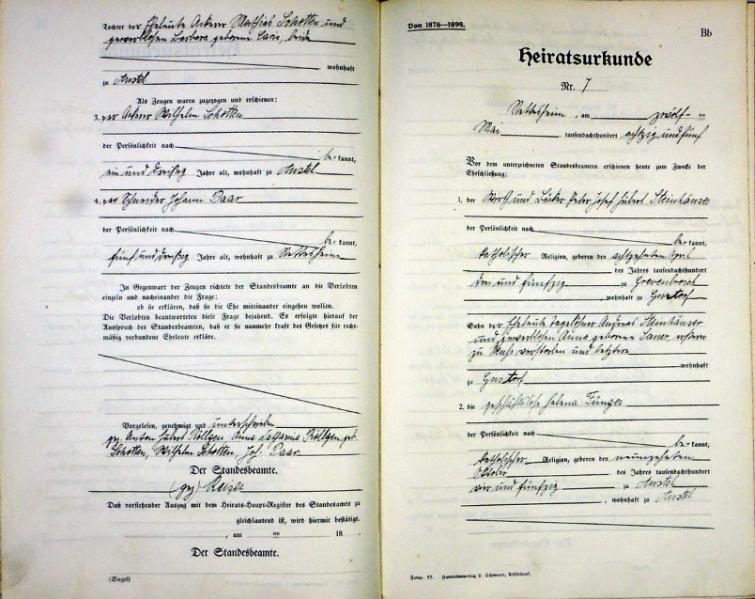 Tochter der Eheleute Ackerer Mathias Schotten und
gewerblosen Barbara geborene beide
wohnhaft
zu Anstel
Als Zeugen waren zugezogen und erschienen:
3. der Ackerer Wilhelm Schotten
der Persönlichkeit nach
be- kannt,
ein und dreißig Jahre alt, wohnhaft zu Anstel
4. der Schneider Johann Daar
der Persönlichkeit nach
be- kannt,
fünf und dreißig Jahre alt, wohnhaft zu Nettesheim
In Gegenwart der Zeugen richtete der Standesbeamte an die Verlobten
einzeln und nacheinander die Frage:
ob sie erklären, daß sie die Ehe miteinander eingehen wollen.
Die Verlobten beantworteten diese Frage bejahend. Es erfolgte hierauf der
Ausspruch des Standesbeamten, daß er sie nunmehr kraft des Gesetzes für recht-
mäßig verbundene Eheleute erkläre.
Vorgelesen, genehmigt und unterschrieben
gez. Anton Hubert Röttgen Anna Catharina Röttgen geb.
Schotten, Wilhelm Schotten, Joh. Daar
Der Standesbeamte.
(gez)
Daß vorstehender Auszug mit dem Heirats-Haupt-Register des Standesamts zu
gleichlautend ist, wird hiermit bestätigt.
, am ten 18
Der Standesbeamte.
(Siegel)
Von 1876—1899.
Bb
Heiratsurkunde
Nr. 7
Nettesheim, am zwölf- ten
Mai tausendachthundert achtzig und fünf
Vor dem unterzeichneten Standesbeamten erschienen heute zum Zwecke der
Eheschließung:
1. der Wirth und Bäcker Peter Josef Hubert Steinhäuser
der Persönlichkeit nach
be- kannt,
katholischer Religion, geboren den achtzehnten April
des Jahres tausendachthundert
drei und fünfzig zu Grevenbroich
, wohnhaft zu Gustorf
Sohn der Eheleute Tagelöhner Andreas Steinhäuser
und gewerblosen Anna geborene Sauer, ersterer
zu Neuß verstorben und letztere
wohnhaft
zu Gustorf
2. die geschäftslose Helena Dünger
der Persönlichkeit nach
be- kannt,
katholischer Religion, geboren den neunzehnten
Oktober des Jahres tausendachthundert
vier und fünfzig zu Anstel
, wohnhaft zu Anstel